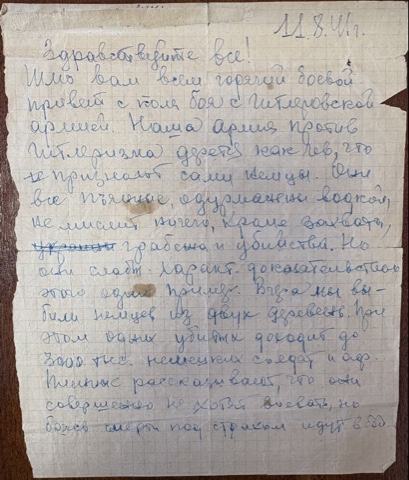 11.8.41г.
Здравствуйте все!
Шлю вам всем горячий боевой
привет с поля боя с Гитлеровской
армией. Наша Армия против
Гитлеризма дерется как лев, что
признают сами немцы. Они
все пьяные, одурманены водкой,
не мыслит ничего, кроме захвата,
грабежа и убийства. Но
они слабы. Характ. доказательством
этого один пример. Вчера мы вы-
били немцев из двух деревень. При
этом одних убитых доходит до
3000 тыс. немецких солдат и оф.
Пленные рассказывают, что они
совершенно не хотят воевать, но
боясь смерти под страхом идут в бой